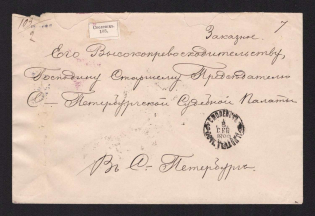 Заказное.
7
Его Высокопревосходительству,
Господину Старшему Председателю
С.-Петербургской Судебной Палаты
Въ С.-Петербургъ.